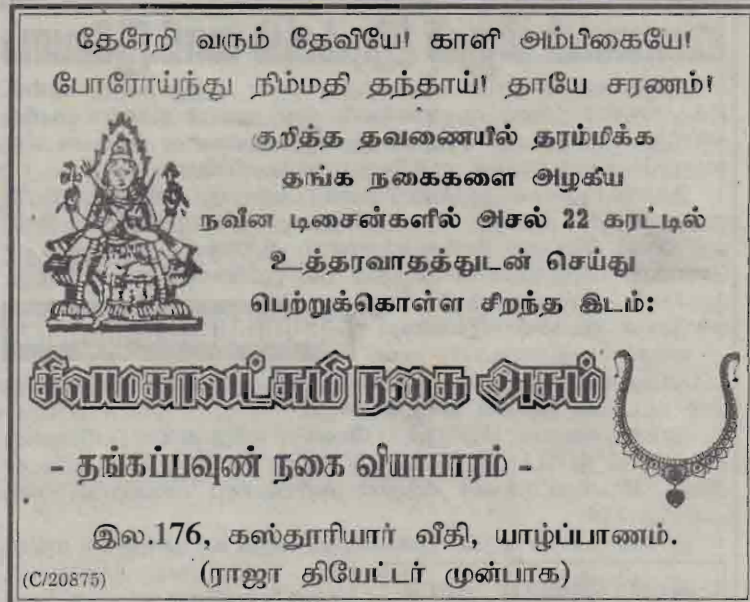 தேரேறி வரும் தேவியே! காளி அம்பிகையே!
போரோய்ந்து நிம்மதி தந்தாய்! தாயே சரணம்!
குறித்த தவணையில் தரம்மிக்க
தங்க நகைகளை அழகிய
நவீன டிசைன்களில் அசல் 22 கரட்டில்
உத்தரவாதத்துடன் செய்து
பெற்றுக்கொள்ள சிறந்த இடம்:
சிவமகாலட்சுமி நகை அகம்
- தங்கப்பவுண் நகை வியாபாரம் -
இல.176, கஸ்தூரியார் வீதி, யாழ்ப்பாணம்.
(C/20875) (ராஜா தியேட்டர் முன்பாக)